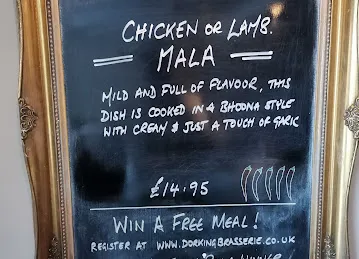 CHICKEN OR LAMB.
MALA
MILD AND FULL OF FLAVOUR, THIS
DISH IS COOKED IN A BHOONA STYLE
WITH CREAM & JUST A TOUCH OF GARLIC
£14.95
WIN A FREE MEAL!
REGISTER AT WWW.DORKINGBRASSERIE.CO.UK